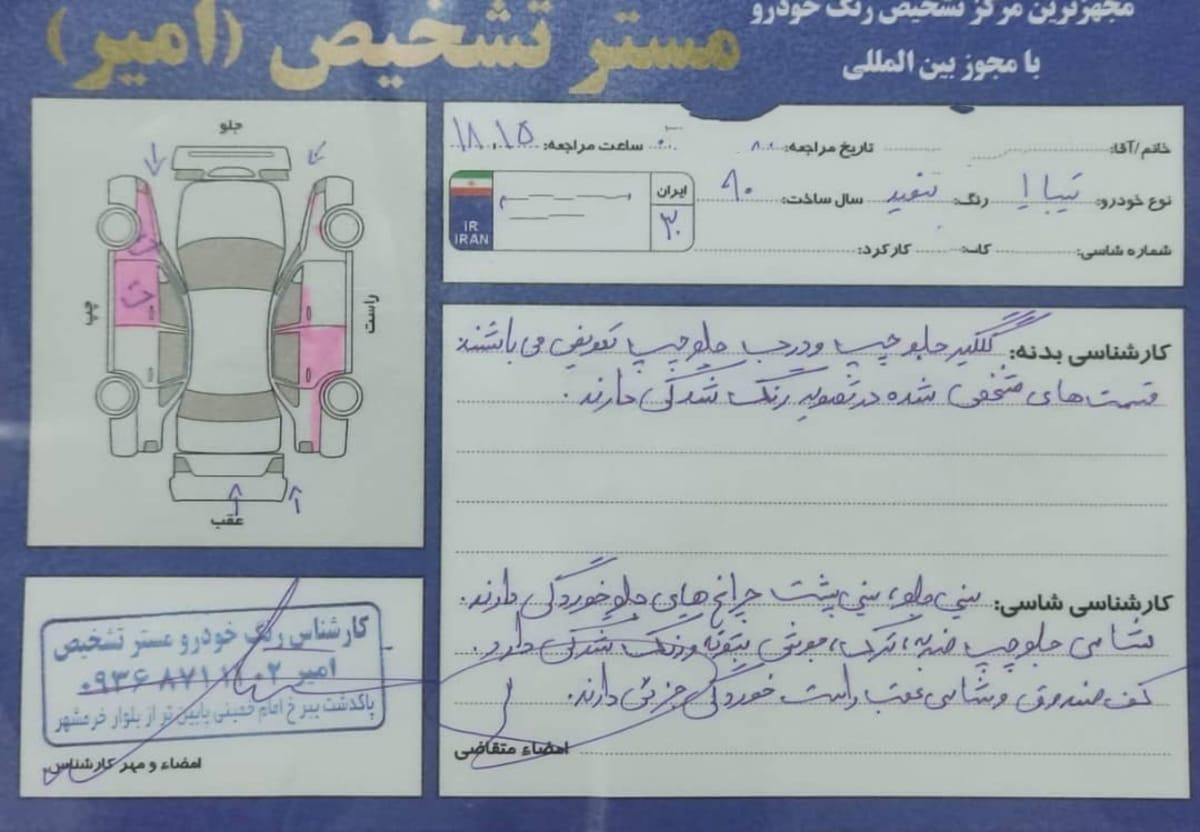 مجهزترین مرکز تشخیص رنگ خودرو
با مجوز بین المللی
مستر تشخیص (امیر)
خانم/آقا:
تاریخ مراجعه:
ساعت مراجعه: ۱۸:۱۵
نوع خودرو: تیبا ۱ رنگ: سفید سال ساخت: ۹۰
ایران
۳۰
IR
IRAN
شماره شاسی: کاب: کارکرد:
جلو
راست
چپ
ت
ت
عقب
کارشناسی بدنه: گلگیر جلو چپ و درب جلو چپ تعویض می باشند
قسمت های مشخص شده در تصویر رنگ شدگی دارند.
کارشناسی شاسی: سینی جلو، سینی پشت چراغ های جلو خوردگی دارند.
شاسی جلو چپ ضربه، ترک، جوش بتونه و رنگ شدگی دارد.
کف صندوق و شاسی عقب راست خوردگی جزئی دارند.
امضاء متقاضی
کارشناس رنگ خودرو مستر تشخیص
امیر
پاکدشت بین خ امام خمینی پایین تر از بلوار خرمشهر
امضاء و مهر کارشناس